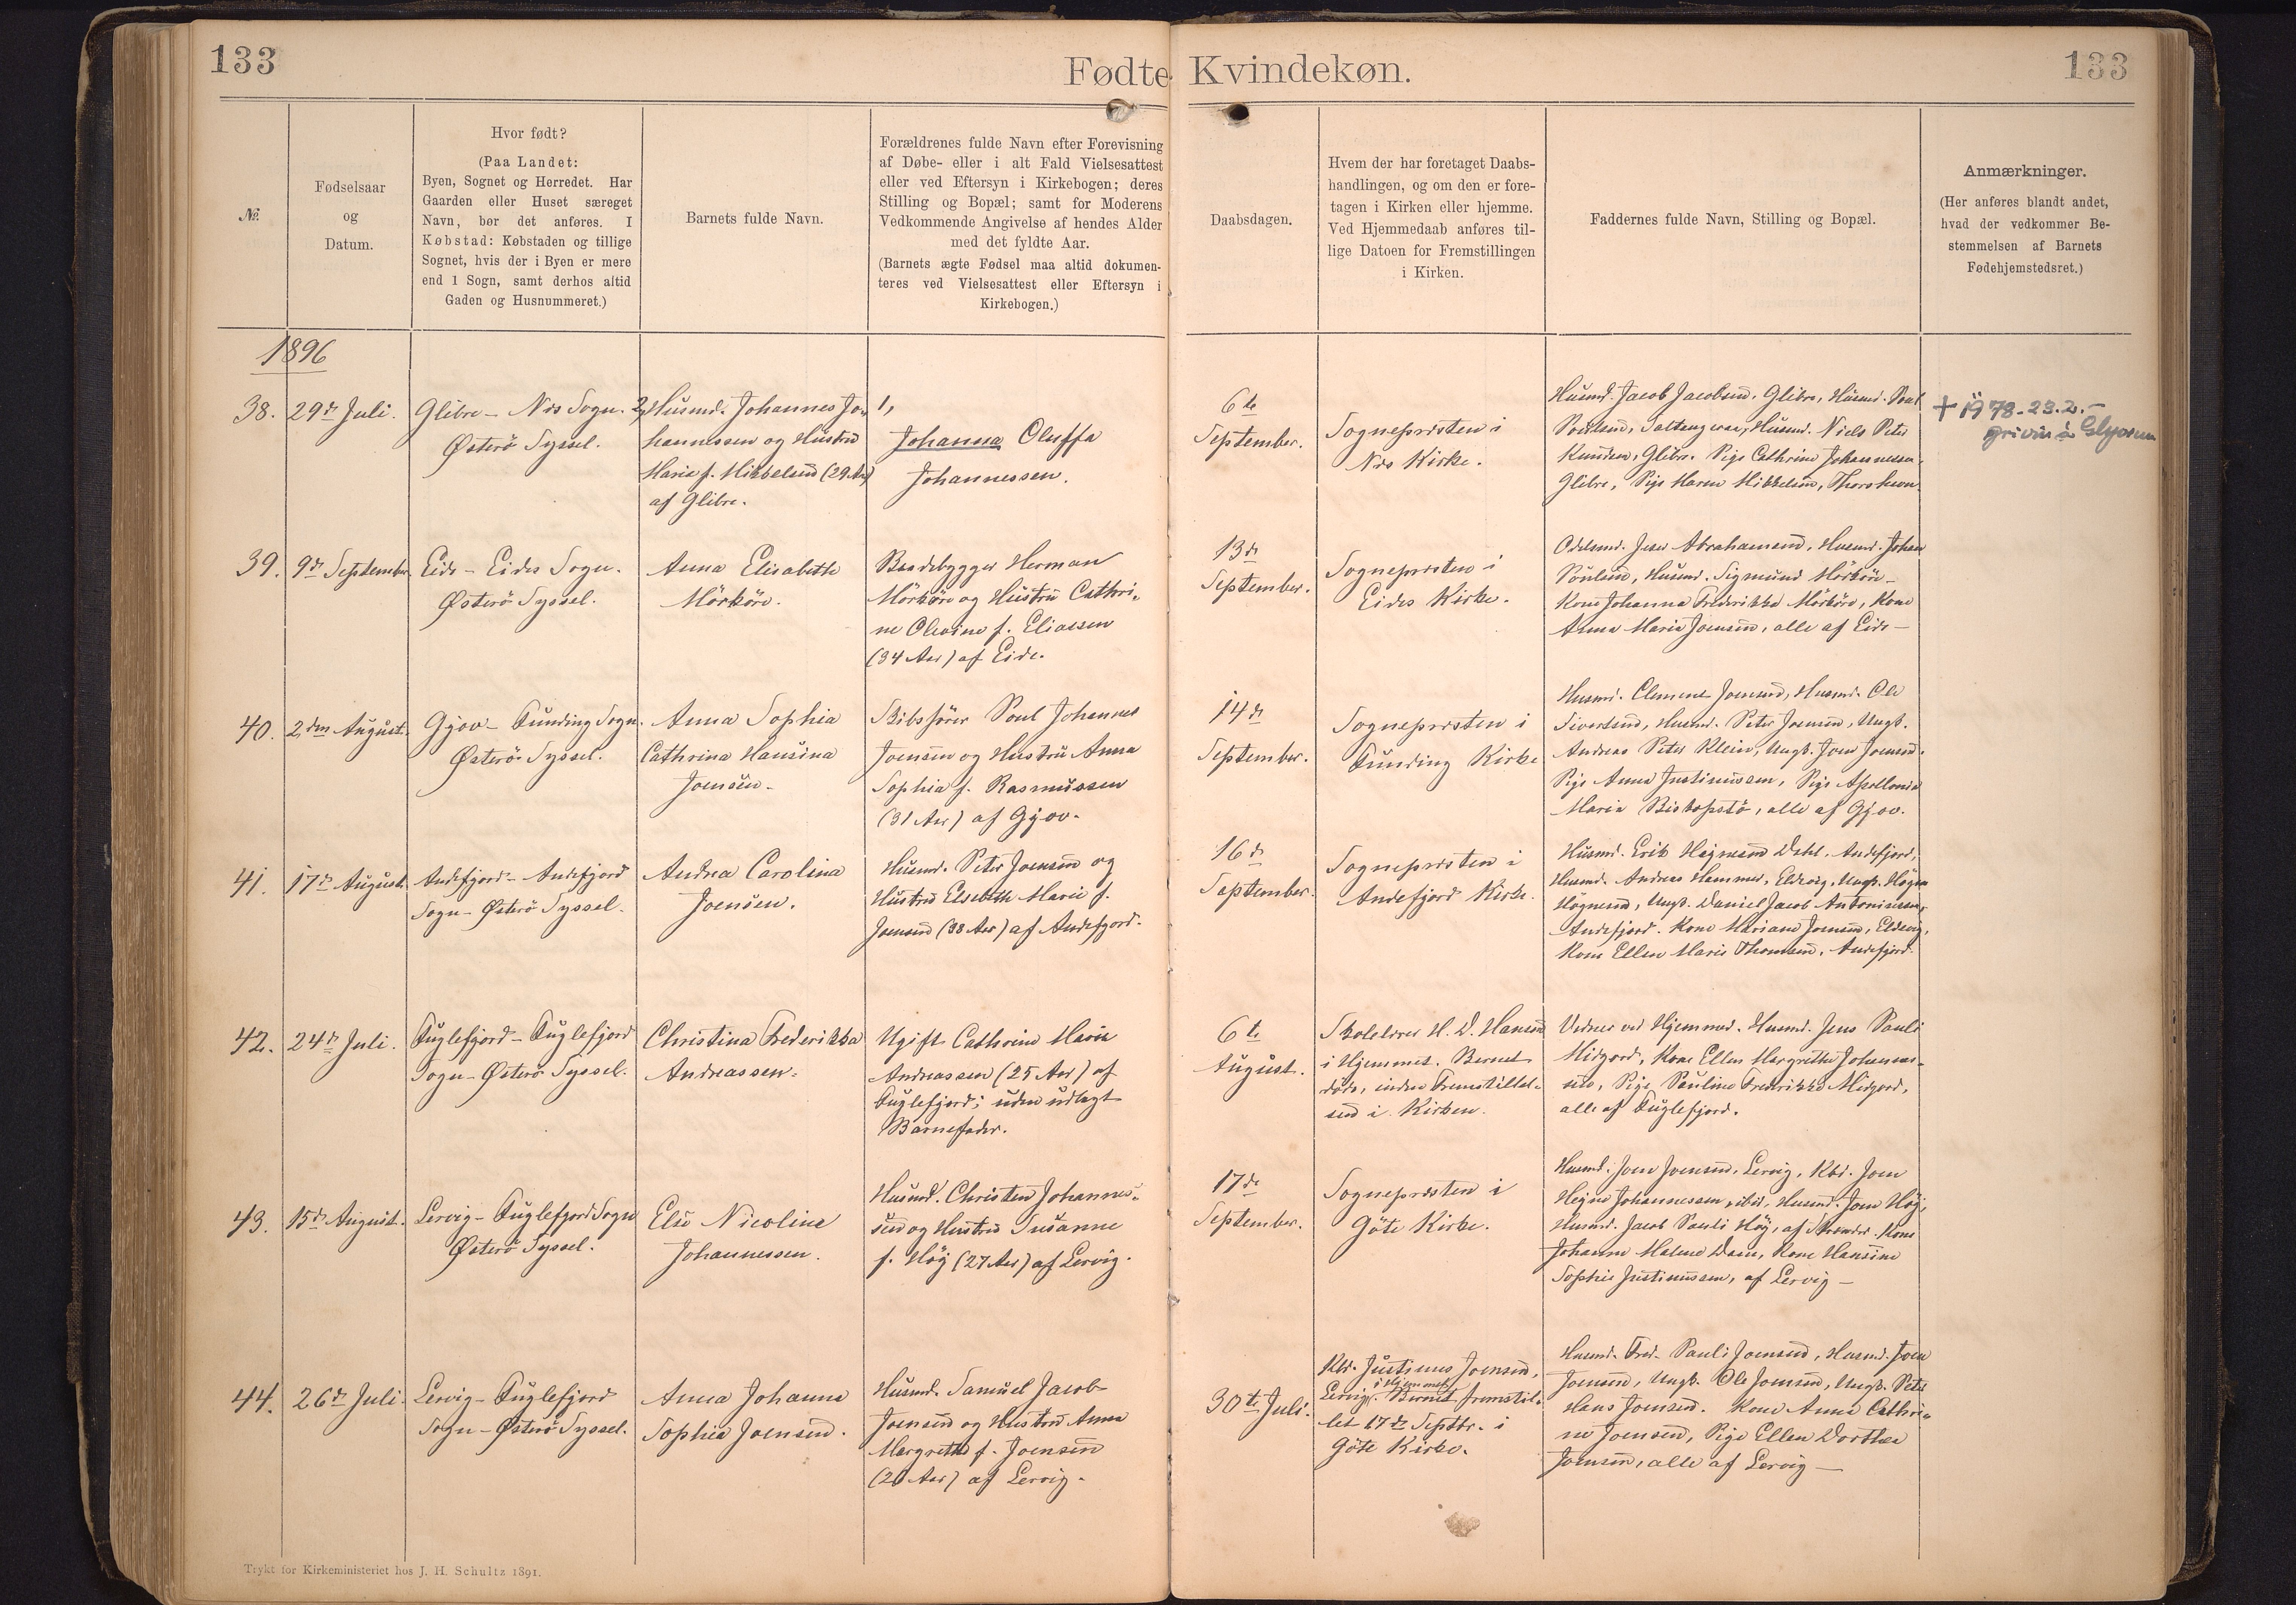 133
Fødte Kvindekøn.
133
№
Fødselsaar
og
Datum.
Hvor født?
(Paa Landet:
Byen, Sognet og Herredet. Har
Gaarden eller Huset særeget
Navn, bør det anføres. I
Købstad: Købstaden og tillige
Sognet, hvis der i Byen er mere
end 1 Sogn, samt derhos altid
Gaden og Husnummeret.)
Barnets fulde Navn.
Forældrenes fulde Navn efter Forevisning
af Døbe- eller i alt Fald Vielsesattest
eller ved Eftersyn i Kirkebogen; deres
Stilling og Bopæl; samt for Moderens
Vedkommende Angivelse af hendes Alder
med det fyldte Aar.
(Barnets ægte Fødsel maa altid dokumen-
teres ved Vielsesattest eller Eftersyn i
Kirkebogen.)
Daabsdagen.
Hvem der har foretaget Daabs-
handlingen, og om den er fore-
tagen i Kirken eller hjemme.
Ved Hjemmedaab anføres til-
lige Datoen for Fremstillingen
i Kirken.
Faddernes fulde Navn, Stilling og Bopæl.
Anmærkninger.
(Her anføres blandt andet,
hvad der vedkommer Be-
stemmelsen af Barnets
Fødehjemstedsret.)
1896
38.
29de Juli.
Glibre - Nes Sogn.
Østerö Syssel.
2, Husmd. Johannes Jo-
hannessen og Hustru
Marie f. Mikkelsen (29 Aar)
af Glibre.
1,
Johanna Oluffa
Johannessen.
6te
September.
Sognepresten i
Nes Kirke.
Husmd. Jacob Jacobsen, Glibre, Husmd. Poul
Poulsen, Saltangeraa, Husmd. Niels Peter
Knudsen, Glibre. Pige Cathrine Johannessen,
Glibre, Pige Maren Mikkelsen, Thorshavn.
+ 1978-23.2.-
grivin á Glyvrum
39.
9de September.
Eide - Eides Sogn.
Østerö Syssel.
Anna Elisabeth
Mörköre.
Baadebygger Herman
Mörköre og Hustru Cathri-
ne Olevine f. Eliassen
(34 Aar) af Eide.
13de
September.
Sognepresten i
Eides Kirke.
Odelsmd. Jens Abrahamsen, Husmd. Johan
Poulsen, Husmd. Sigmund Mörköre -
Kone Johanna Frederikke Mörköre, Kone
Anna Maria Joensen, alle af Eide -
40.
2den August.
Gjov - Funding Sogn.
Østerö Syssel.
Anna Sophia
Cathrina Hansina
Joensen -
Skibsfører Poul Johannes
Joensen og Hustru Anna
Sophia f. Rasmussen
(31 Aar) af Gjov.
14de
September.
Sognepresten i
Funding Kirke
Husmd. Clement Joensen, Husmd. Ole
Sivertsen, Husmd. Peter Joensen, Ungk.
Andreas Peter Klein, Ungk. Joen Joensen.
Pige Anna Justinussen, Pige Apollonia
Maria Biskopstö, alle af Gjov.
41.
17de August.
Andefjord - Andefjord
Sogn - Østerö Syssel.
Andrea Carolina
Joensen.
Husmd. Peter Joensen og
Hustru Elsebeth Marie f.
Joensen (38 Aar) af Andefjord.
16de
September.
Sognepresten i
Andefjord Kirke.
Husmd. Erik Højnesen Dahl, Andefjord,
Husmd. Andreas Hammer, Eldevig, Ungk. Högne
Högnesen, Ungk. Daniel Jacob Antoniussen,
Andefjord. Kone Mariane Joensen, Eldevig,
Kone Ellen Marie Thomsen, Andefjord.
42.
24de Juli.
Fuglefjord - Fuglefjord
Sogn - Østerö Syssel.
Christina Frederikka
Andreassen.
Ugift Cathrine Marie
Andreassen (25 Aar) af
Fuglefjord; uden udlagt
Barnefader.
6te
August.
Skolelærer H. D. Hansen
i Hjemmet. Barnet
döde, inden Fremstillel-
sen i Kirken.
Vidner ved Hjemmed. Husmd. Jens Pauli
Midgord, Kone Ellen Margrethe Johannes-
sen, Pige Pauline Frederikke Midgord,
alle af Fuglefjord.
43.
15de August.
Lervig - Fuglefjord Sogn
Østerö Syssel.
Else Nicoline
Johannessen.
Husmd. Christen Johannes-
sen og Hustru Susanne
f. Höj (27 Aar) af Lervig.
17de
September.
Sognepresten i
Göte Kirke.
Husmd. Joen Joensen, Lervig, Kbd. Joen
Hejne Johannessen, ibid, Husmd. Joen Höj,
Husmd. Jacob Pauli Höj, af Strender. Kone
Johanne Malene Dam, Kone Hansine
Sophie Justinussen, af Lervig -
44.
26de Juli.
Lervig - Fuglefjord
Sogn - Østerö Syssel.
Anna Johanna
Sophia Joensen.
Husmd. Samuel Jacob
Joensen og Hustru Anna
Margrethe f. Joensen
(26 Aar) af Lervig.
30te Juli.
Kbd. Justinus Joensen,
i Hjemmet
Lervig. Barnet fremstil-
let 17de Septbr. i
Göte Kirke.
Husmd. Fred. Pauli Joensen, Husmd. Joen
Joensen, Ungk. Ole Joensen, Ungk. Peter
Hans Joensen. Kone Anna Cathri-
ne Joensen, Pige Ellen Dorthea
Joensen, alle af Lervig -
Trykt for Kirkeministeriet hos J. H. Schultz 1891.